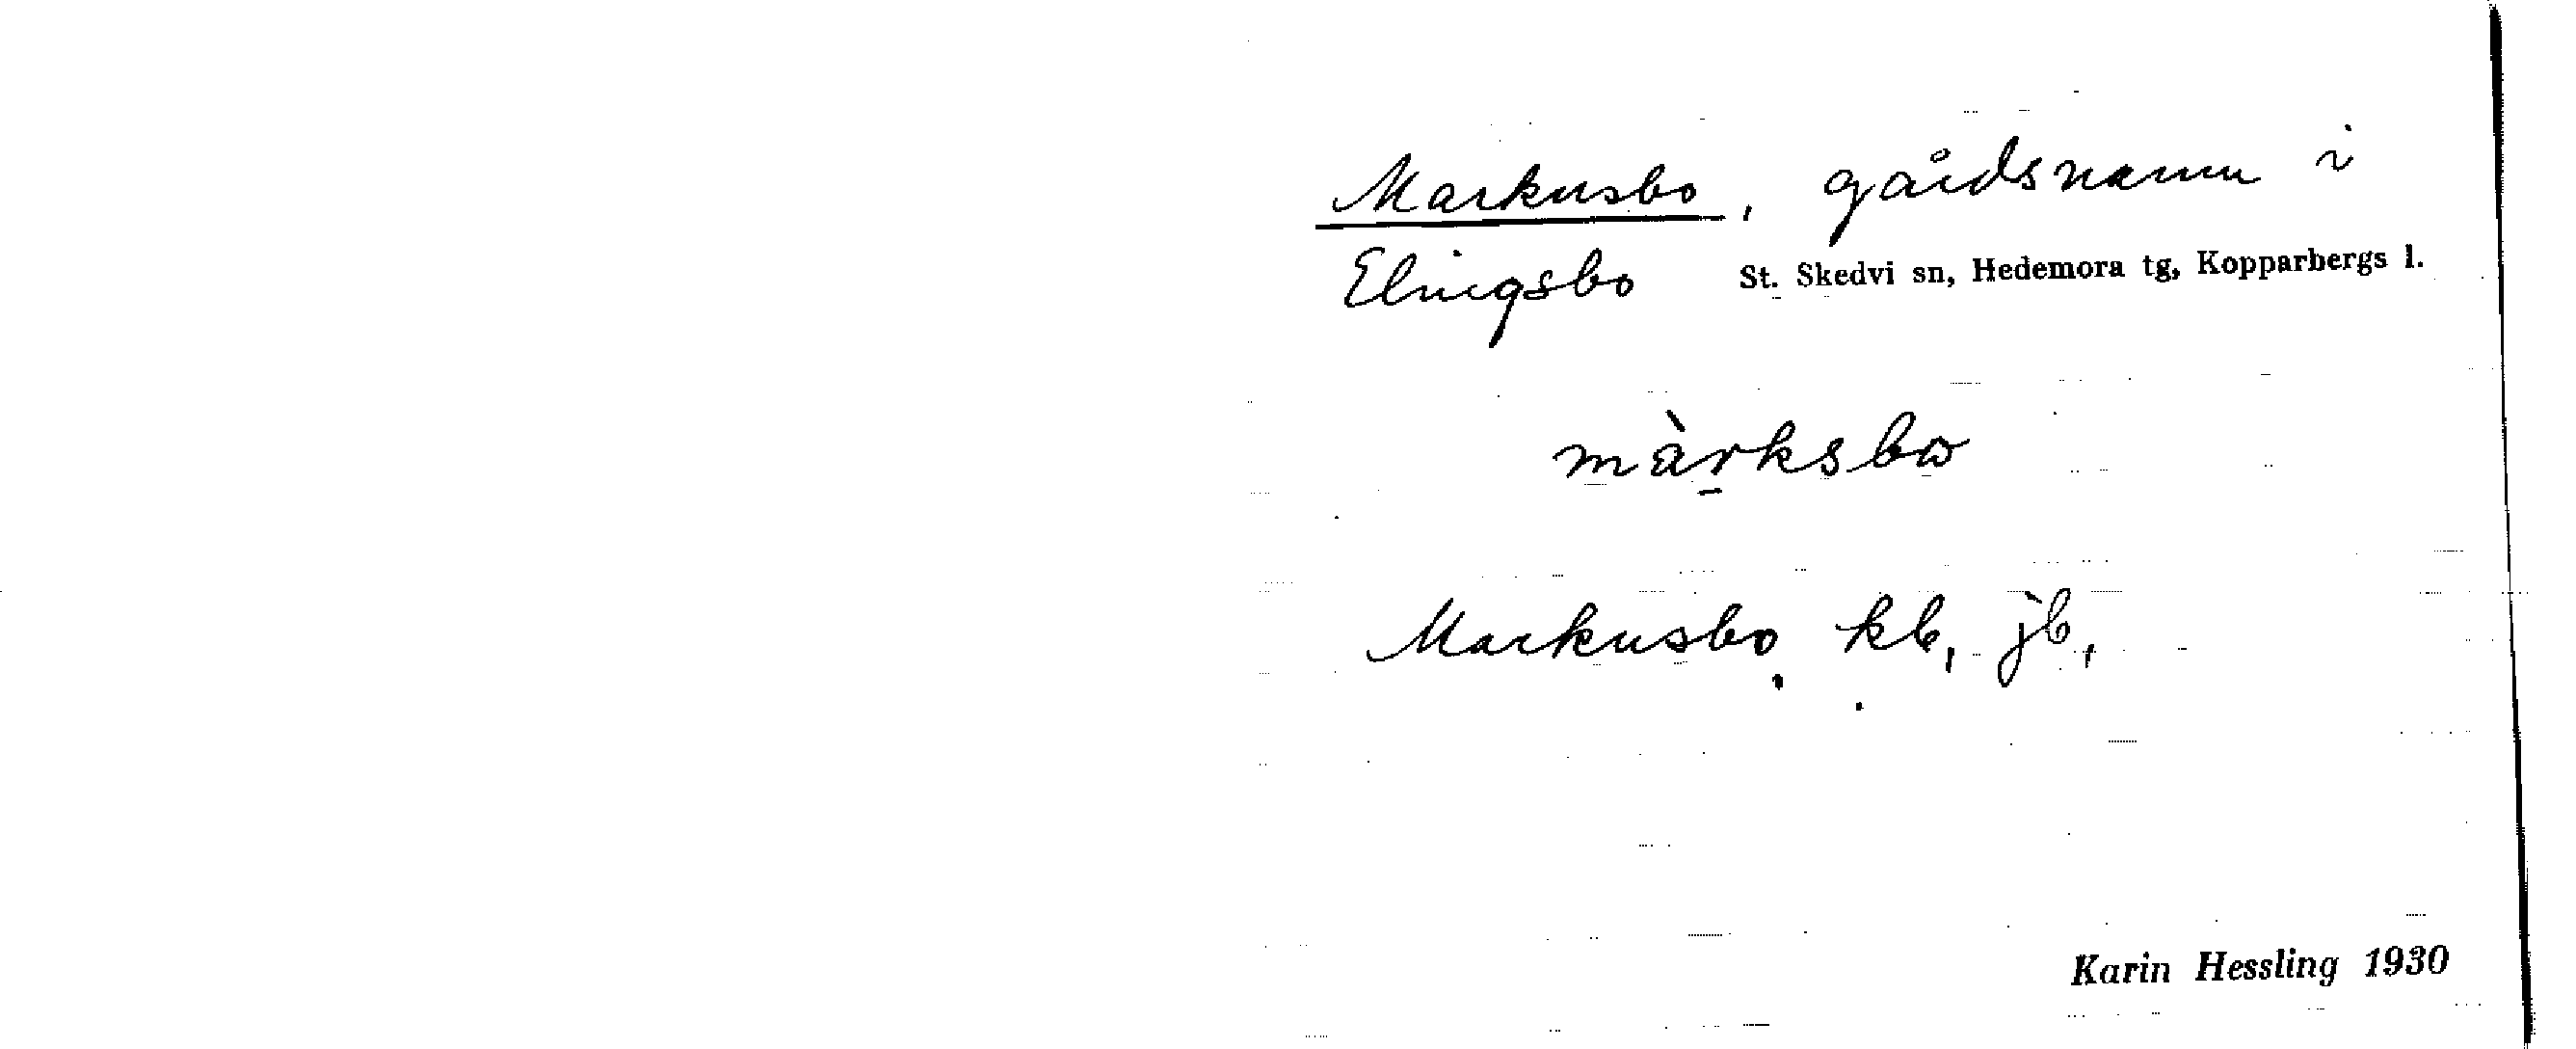 Markusbo, gårdsnamn i
Elingsbo St. Skedvi sn, Hedemora tg, Kopparbergs l.
màrksbω
Markusbo kb, jb,
Karin Hessling 1930